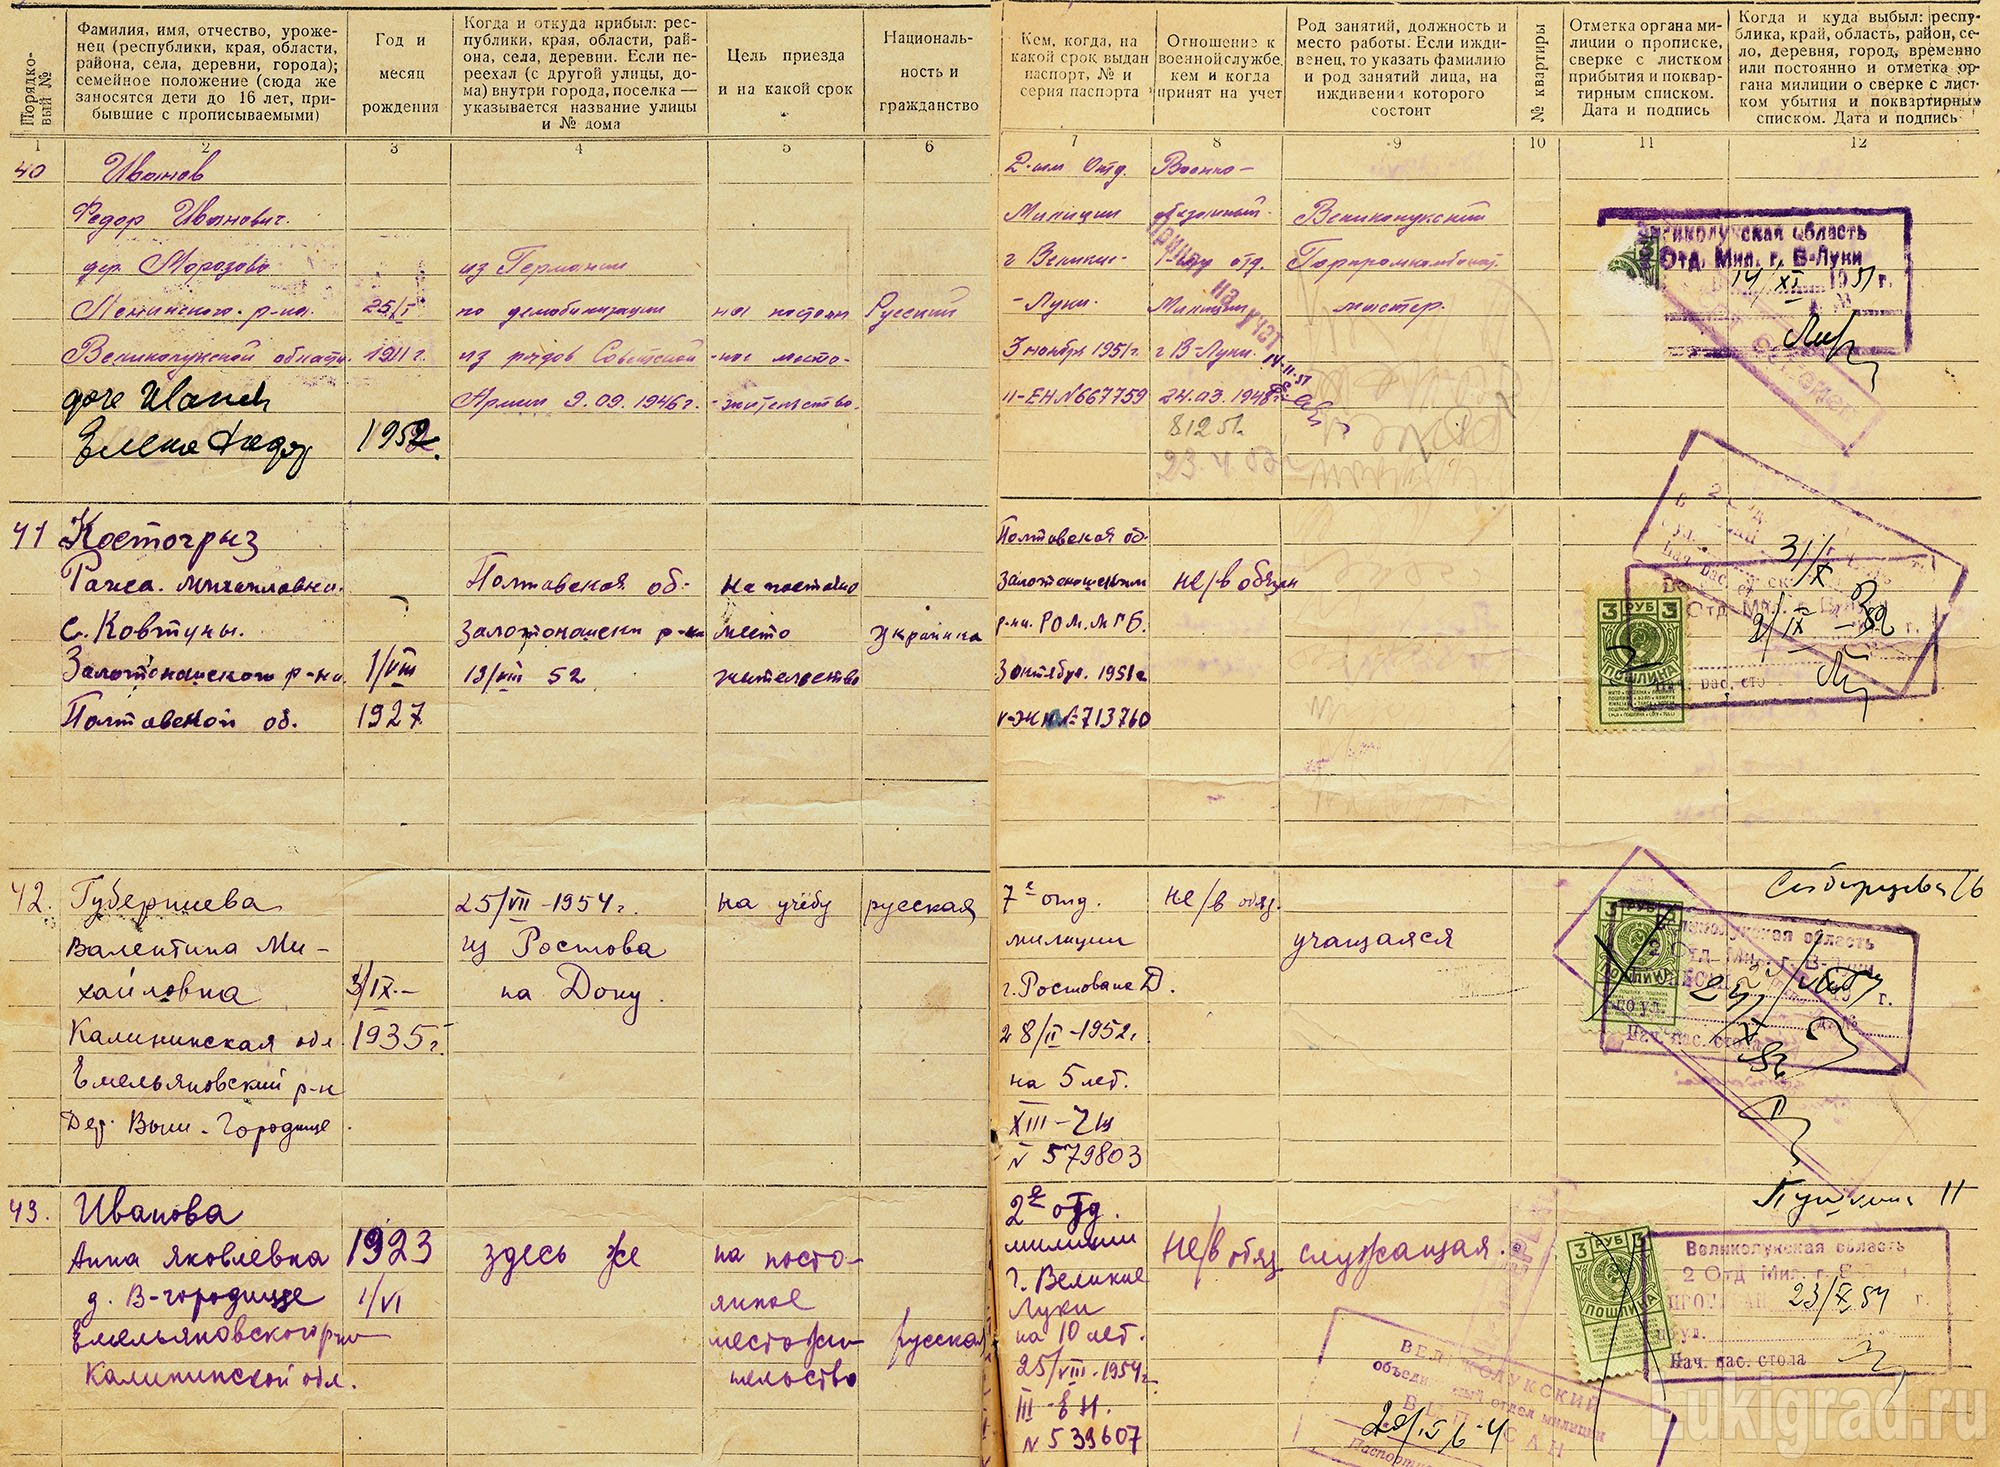 Порядко-
вый №
Фамилия, имя, отчество, уроже-
нец (республики, края, области,
района, села, деревни, города);
семейное положение (сюда же
заносятся дети до 16 лет, при-
бывшие с прописываемыми)
Год и
месяц
рождения
Когда и откуда прибыл: рес-
публики, края, области, рай-
она, села, деревни. Если пе-
реехал (с другой улицы, до-
ма) внутри города, поселка —
указывается название улицы
и № дома
Цель приезда
и на какой срок
Националь-
ность и
гражданство
Кем, когда, на
какой срок выдан
паспорт, № и
серия паспорта
Отношение к
военной службе,
кем и когда
принят на учет
Род занятий, должность и
место работы. Если ижди-
венец, то указать фамилию
и род занятий лица, на
иждивении которого
состоит
№ квартиры
Отметка органа ми-
лиции о прописке,
сверке с листком
прибытия и поквар-
тирным списком.
Дата и подпись
Когда и куда выбыл: респу-
блика, край, область, район, се-
ло, деревня, город, временно
или постоянно и отметка ор-
гана милиции о сверке с лист-
ком убытия и поквартирным
списком. Дата и подпись
1 2 3 4 5 6 7 8 9 10 11 12
40
Иванов
Федор Иванович.
дер. Морозово
Ленинского р-на.
Великолукской области.
доче
Елена
25/I
1911 г.
1952.
из Германии
по демобилизации
из рядов Советской
Армии 9.09.1946 г.
на постоян
-ное место-
-жительство.
Русский
2-ым Отд.
Милиции
г Великие-
-Луки.
3 ноября 1951 г.
II-ЕН №667759
Военно-
обязанный.
отд.
Милиции
г В-Луки.
24.03.1948 г.
Принят
на учет
14-11-51
Великолукский
Горпромкомбинат.
мастер.
Великолукская область
Отд. Мил. г. В-Луки
14/XI 1951 г.
41
Костогрыз
Раиса. Михайловна.
с. Ковтуны.
Золотоношского р-на.
Полтавской об.
1/VIII
1927
Полтавская об.
Золотоношски р-на
13/VIII 52
на постояно
место
жительство
Украинка
Полтавская об.
Золотоношским
р-на. РОМ. МГБ.
3 октября. 1951 г
713760
не/в обязан
3 РУБ 3
ПОШЛИНА
Отд. Мил.
31/X
2/IX 52
42.
Губерниева
Валентина Ми-
хайловна
Калининская обл
Емельяновский р-н
Дер. Выш-Городище
3/IX-
1935 г.
25/VII-1954 г.
из Ростова
на Дону.
на учебу
русская
7е отд.
милиции
г. Ростова на Д.
28/II-1952 г.
на 5 лет.
N 579803
не/в обяз.
учащаяся
3 РУБ 3
ПОШЛИНА
Великолукская область
2 Отд. Мил. г. В-Луки
Нач. пас. стола
43.
Иванова
Анна Яковлевна
д. В-городище
Емельяновского р-на
Калининской обл.
1923
1/VI
здесь же
на посто-
янное
местожи-
тельство
русская
2е отд.
милиции
г. Великие
Луки
на 10 лет.
25/VIII-1954 г.
N 539607
не/в обяз
служащая.
ВЕЛИКОЛУКСКИЙ
объединенный отдел милиции
ВЫПИСАН
3 РУБ 3
ПОШЛИНА
Великолукская область
2 Отд. Мил. г. В-Луки
23/X 54 г.
Нач. пас. стола
Lukigrad.ru